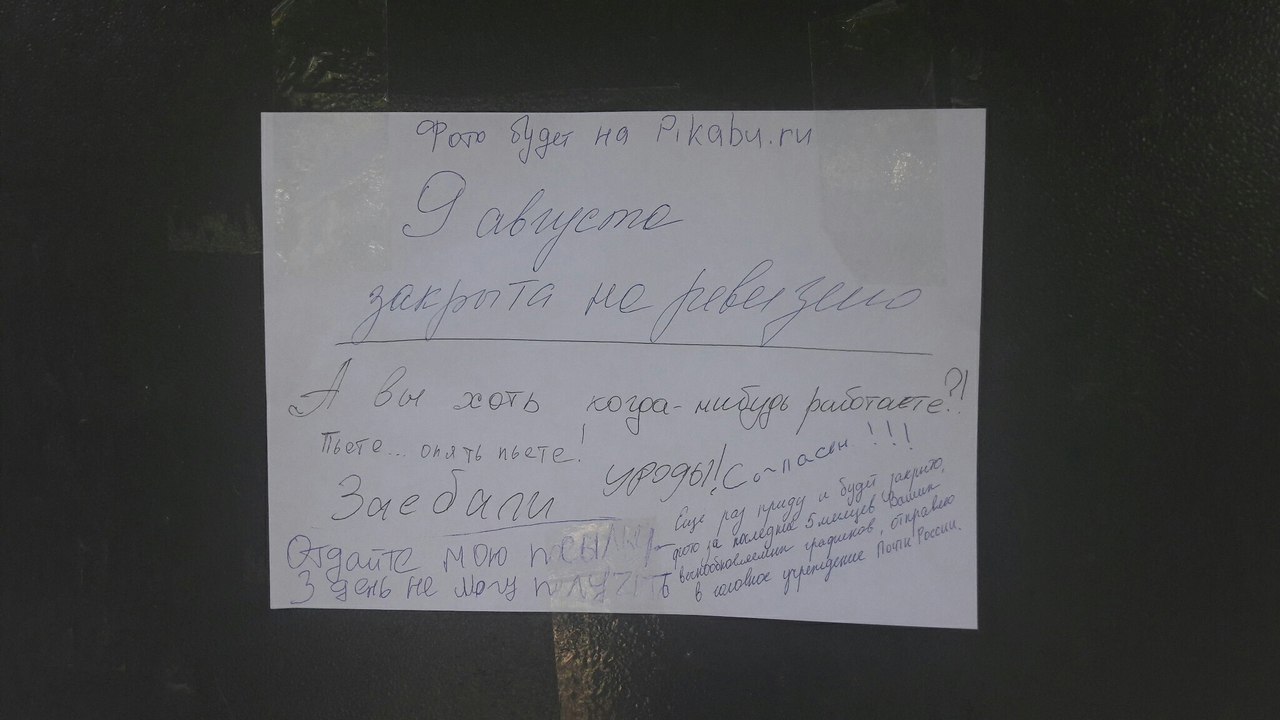 Фото будет на Pikabu.ru
9 августа
закрыта на ревезею
А вы хоть когда-нибудь работаете?!
Пьете... опять пьете!
УРОДЫ!
Согласен!!!
Заебали
Отдайте мою посылку
3 день не могу получить
Еще раз приду и будет закрыто,
фото за последние 5 месяцев Ваших
графиков, отправлю
в головное учреждение Почты России.